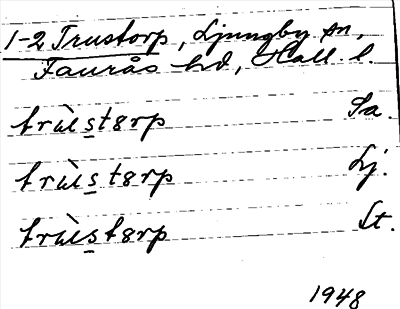 1-2 Trustorp, Ljungby sn,
Faurås hd, Hall. l.
trùstɐrp Sa.
trùstɐrp Lj.
trùstɐrp St.
1948